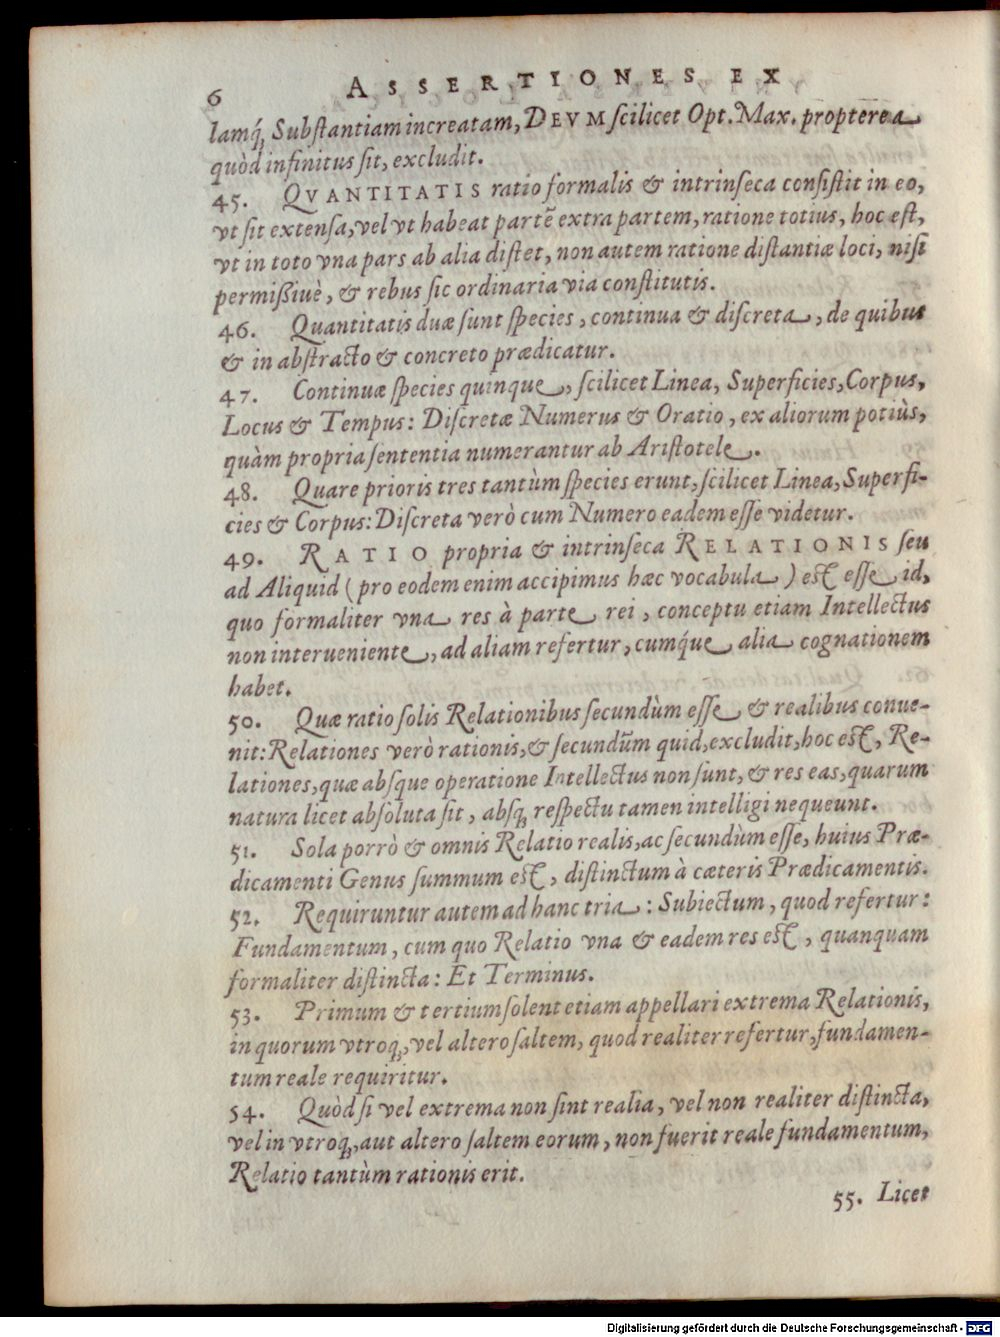 6 ASSERTIONES EX
lamq́; Substantiam increatam, DEVM scilicet Opt. Max. propterea
quòd infinitus sit, excludit.
45. QVANTITATIS ratio formalis & intrinseca consistit in eo,
vt sit extensa, vel vt habeat partē extra partem, ratione totius, hoc est,
vt in toto vna pars ab alia distet, non autem ratione distantiæ loci, nisi
permißiuè, & rebus sic ordinaria via constitutis.
46. Quantitatis duæ sunt species, continua & discreta, de quibus
& in abstracto & concreto prædicatur.
47. Continuæ species quinque, scilicet Linea, Superficies, Corpus,
Locus & Tempus: Discretæ Numerus & Oratio, ex aliorum potiùs,
quàm propria sententia numerantur ab Aristotele.
48. Quare prioris tres tantùm species erunt, scilicet Linea, Superfi-
cies & Corpus: Discreta verò cum Numero eadem esse videtur.
49. RATIO propria & intrinseca RELATIONIS seu
ad Aliquid (pro eodem enim accipimus hæc vocabula) est esse id,
quo formaliter vna res à parte rei, conceptu etiam Intellectus
non interueniente, ad aliam refertur, cumq́ue alia cognationem
habet.
50. Quæ ratio solis Relationibus secundùm esse & realibus conue-
nit: Relationes verò rationis, & secundùm quid, excludit, hoc est, Re-
lationes, quæ absque operatione Intellectus non sunt, & res eas, quarum
natura licet absoluta sit, absq; respectu tamen intelligi nequeunt.
51. Sola porrò & omnis Relatio realis, ac secundùm esse, huius Præ-
dicamenti Genus summum est, distinctum à cæteris Prædicamentis.
52. Requiruntur autem ad hanc tria: Subiectum, quod refertur:
Fundamentum, cum quo Relatio vna & eadem res est, quanquam
formaliter distincta: Et Terminus.
53. Primum & tertium solent etiam appellari extrema Relationis,
in quorum vtroq;, vel altero saltem, quod realiter refertur, fundamen-
tum reale requiritur.
54. Quòd si vel extrema non sint realia, vel non realiter distincta,
vel in vtroq;, aut altero saltem eorum, non fuerit reale fundamentum,
Relatio tantùm rationis erit.
55. Licet
Digitalisierung gefördert durch die Deutsche Forschungsgemeinschaft - DFG